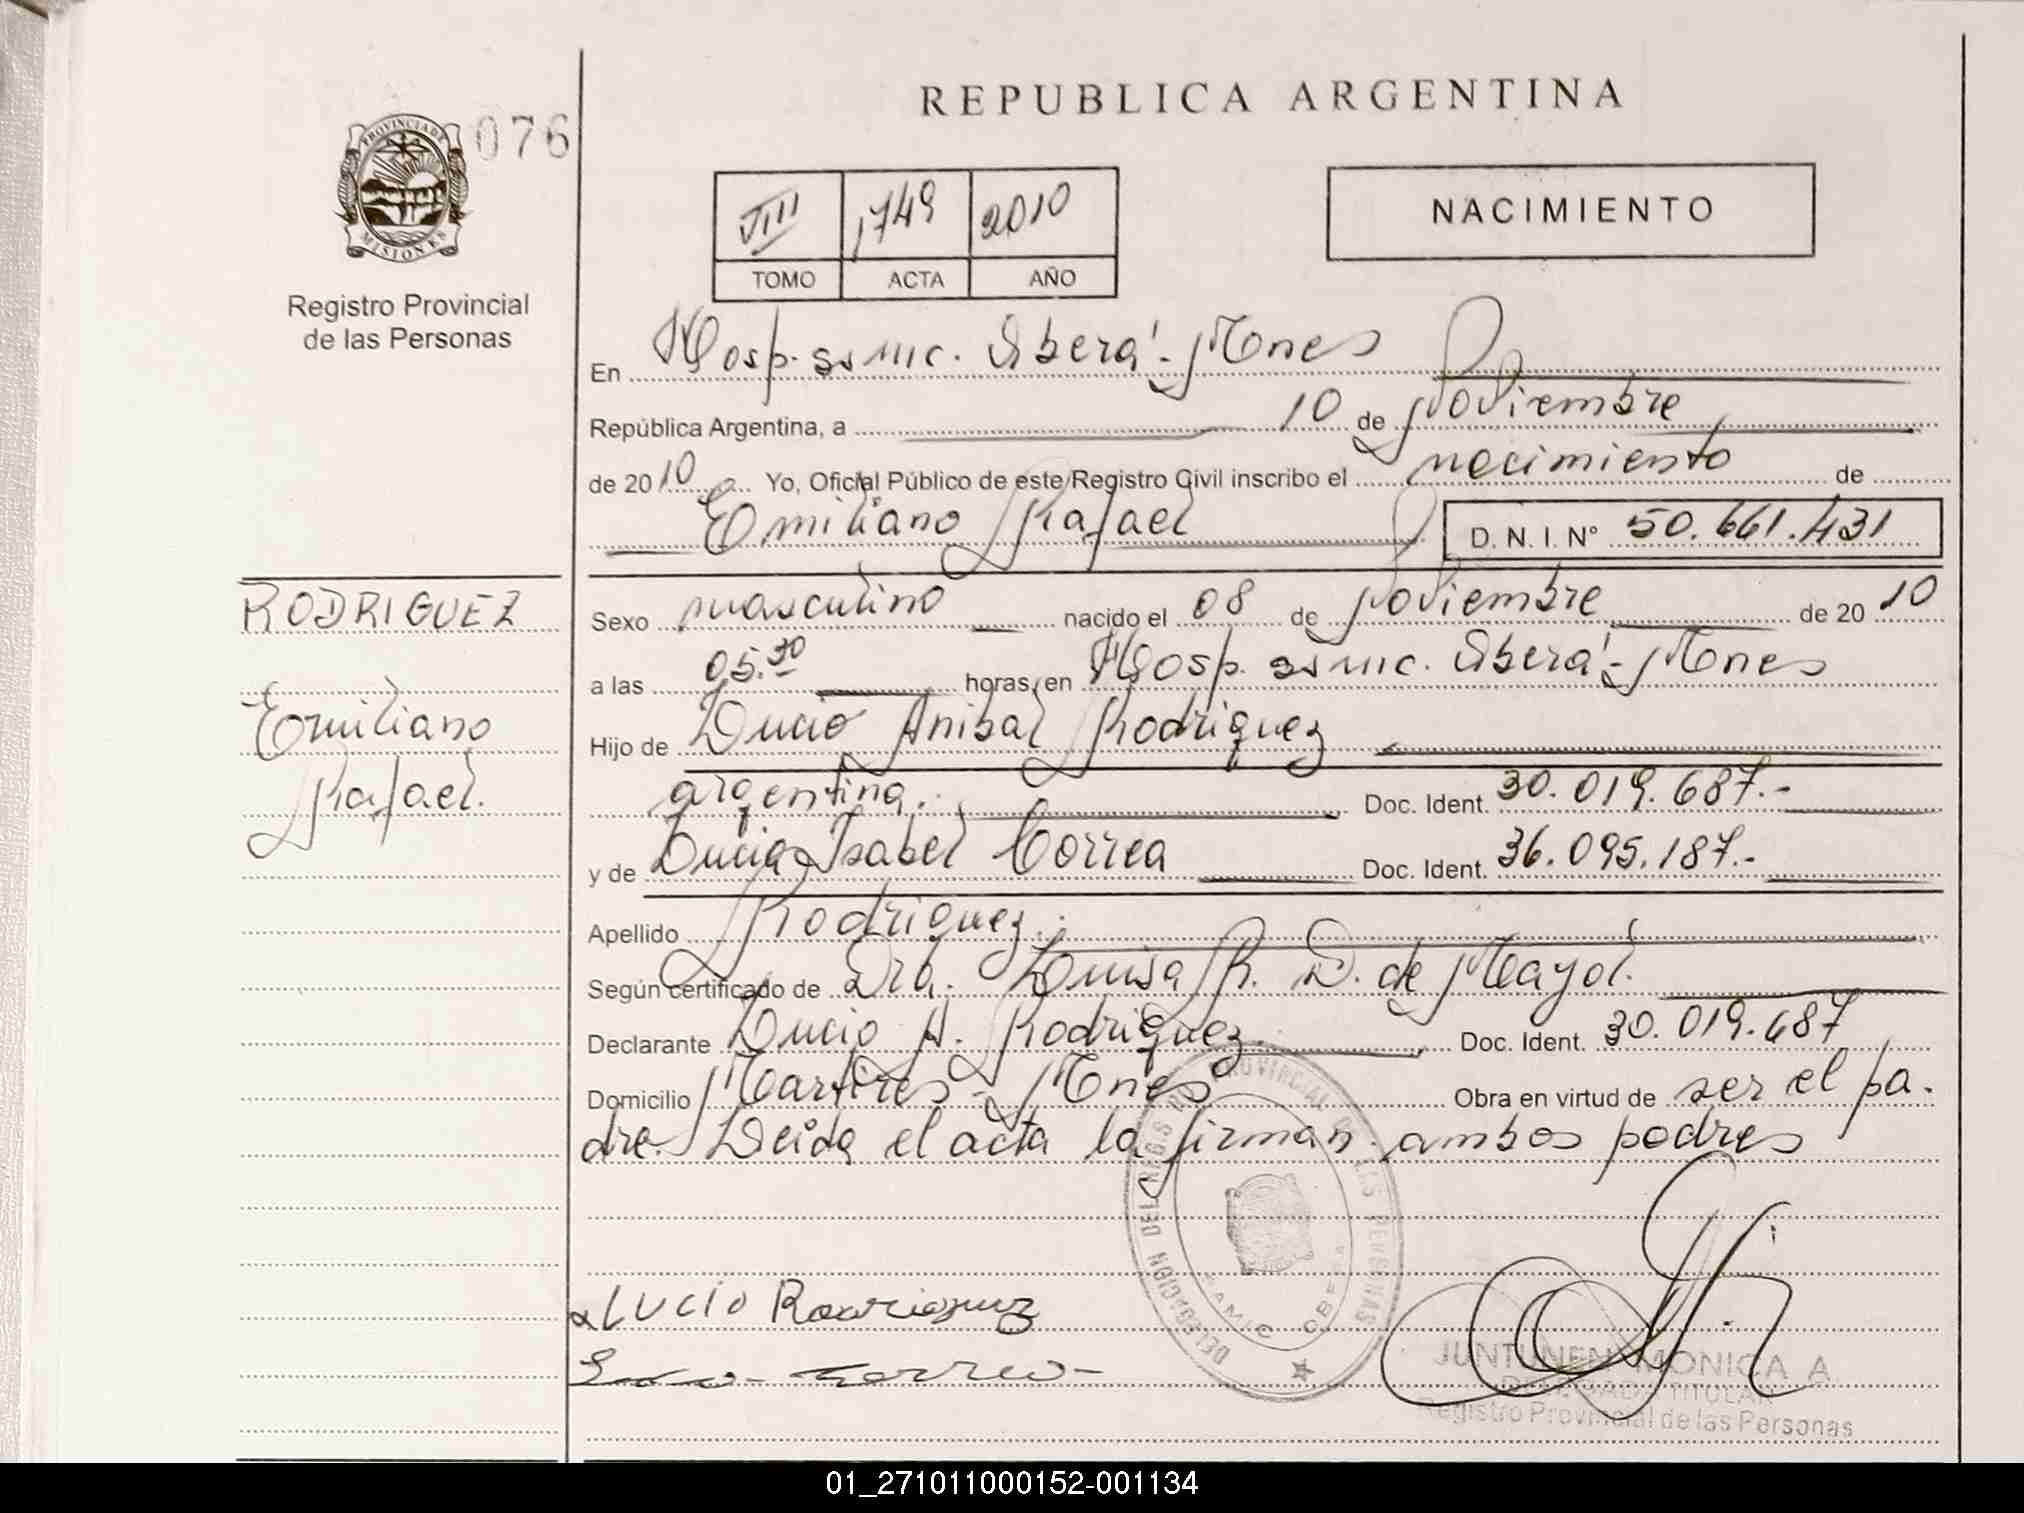 REPUBLICA ARGENTINA
076
PROVINCIA DE MISIONES
Registro Provincial
de las Personas
VIII 1749 2010
TOMO ACTA AÑO
NACIMIENTO
En Hosp. ss mic. Oberá - Mnes
República Argentina, a 10 de Noviembre
de 2010 Yo, Oficial Público de este Registro Civil inscribo el nacimiento de
Emiliano Rafael D. N. I. Nº 50.661.431
RODRIGUEZ
Emiliano
Rafael.
Sexo masculino nacido el 08 de Noviembre de 2010
a las 05.30 horas, en Hosp. ss mic. Oberá - Mnes
Hijo de Lucio Anibal Rodriguez
argentina. Doc. Ident. 30.019.687.-
y de Lucia Isabel Correa Doc. Ident. 36.095.187.-
Apellido Rodriguez.
Según certificado de Dra. Luisa R. D. de Mayol.
Declarante Lucio A. Rodriguez. Doc. Ident. 30.019.687
Domicilio Martires - Mnes Obra en virtud de ser el pa-
dre. Leida el acta la firman ambos padres
LUCIO Rodriguez
Correa
DELEGACION DEL REG.S PROVINCIAL DE LAS PERSONAS
SAMIC OBERA
JUNTUNEN MONICA A.
DELEGADA TITULAR
Registro Provincial de las Personas
01_271011000152-001134